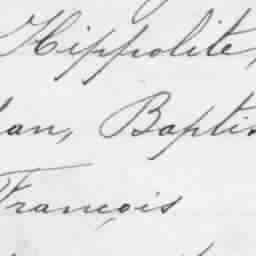 Hippolite,
an, Baptis
François